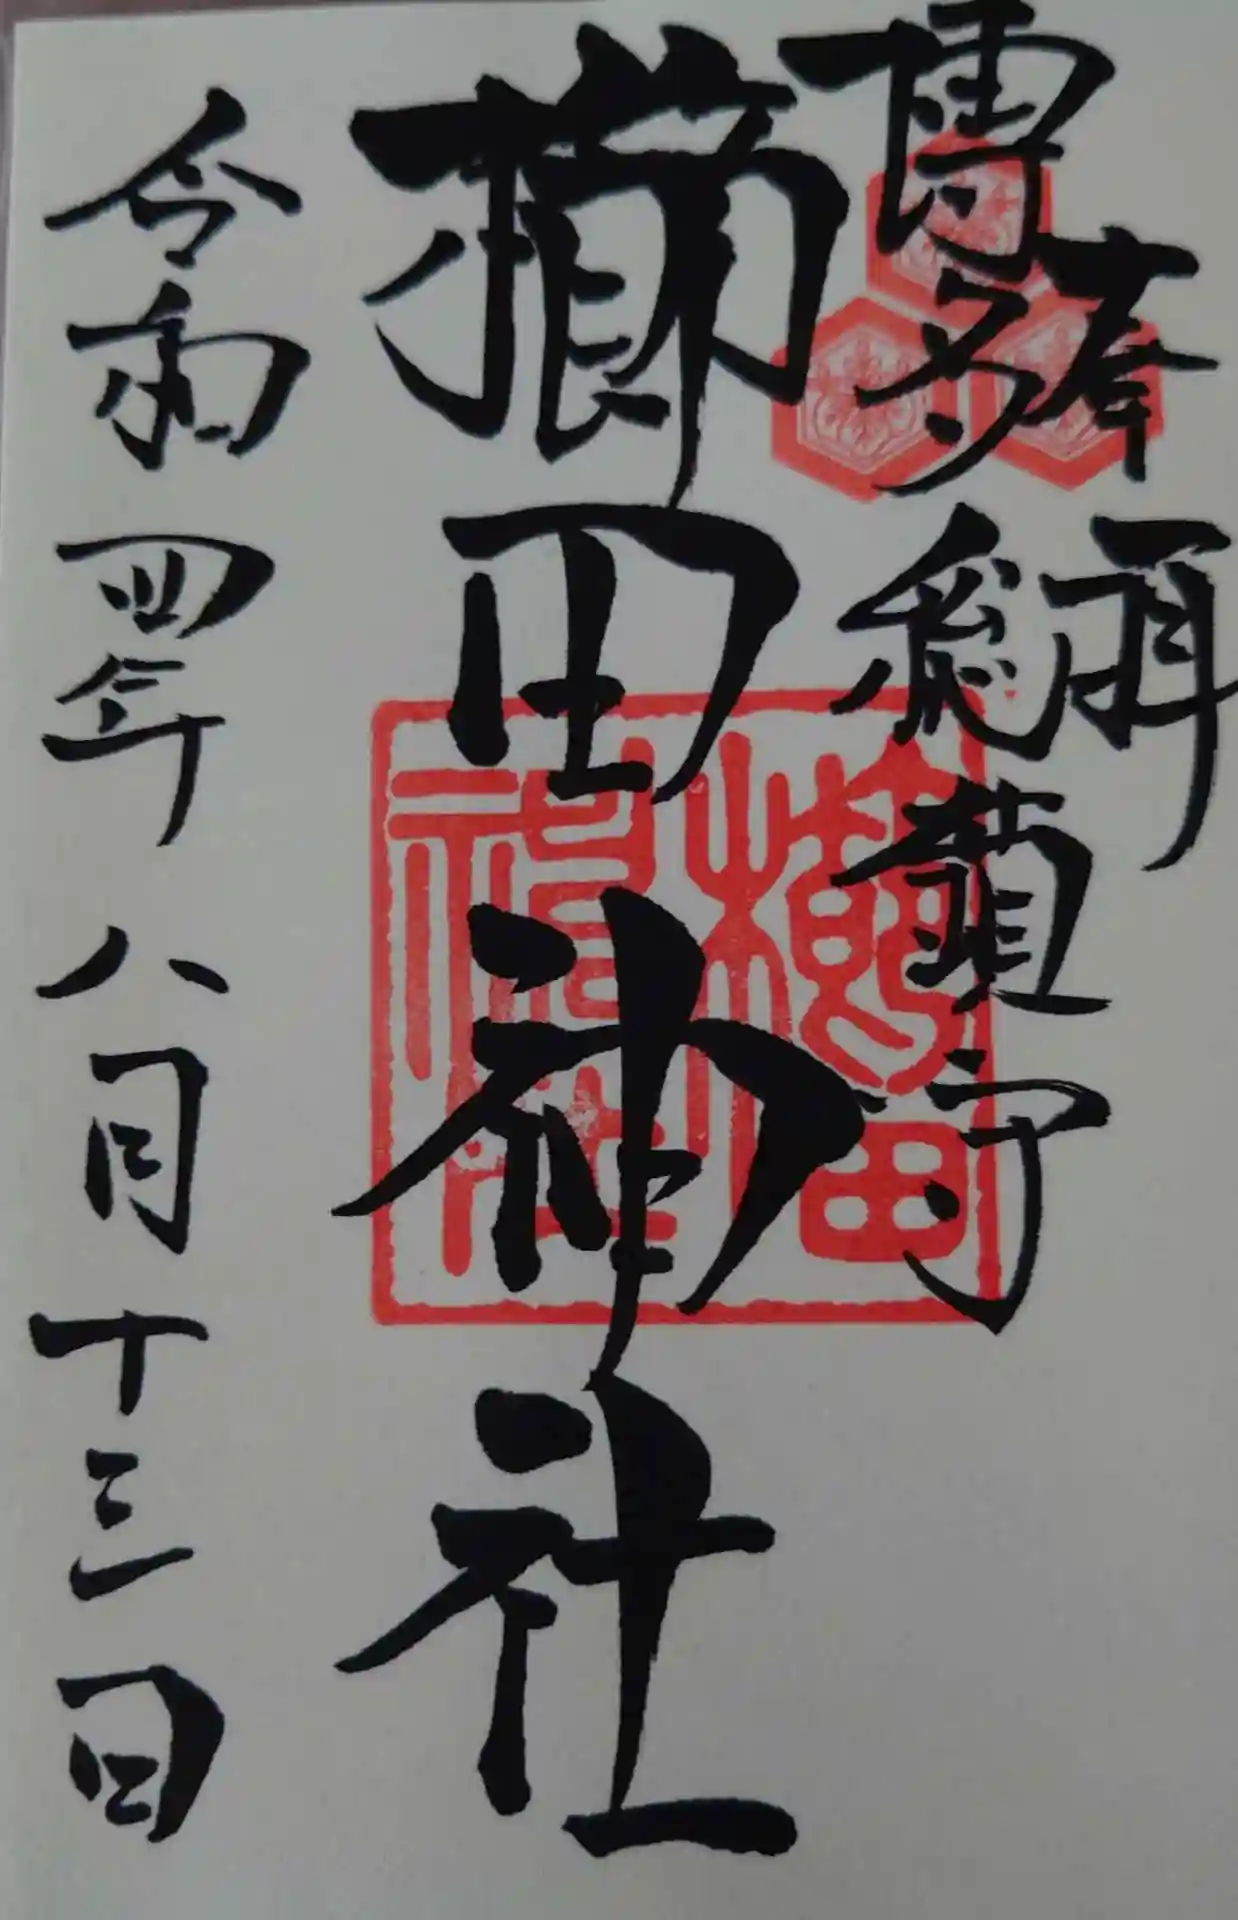 奉拝
博多総鎮守
櫛田神社
櫛田神社
令和四年八月十三日